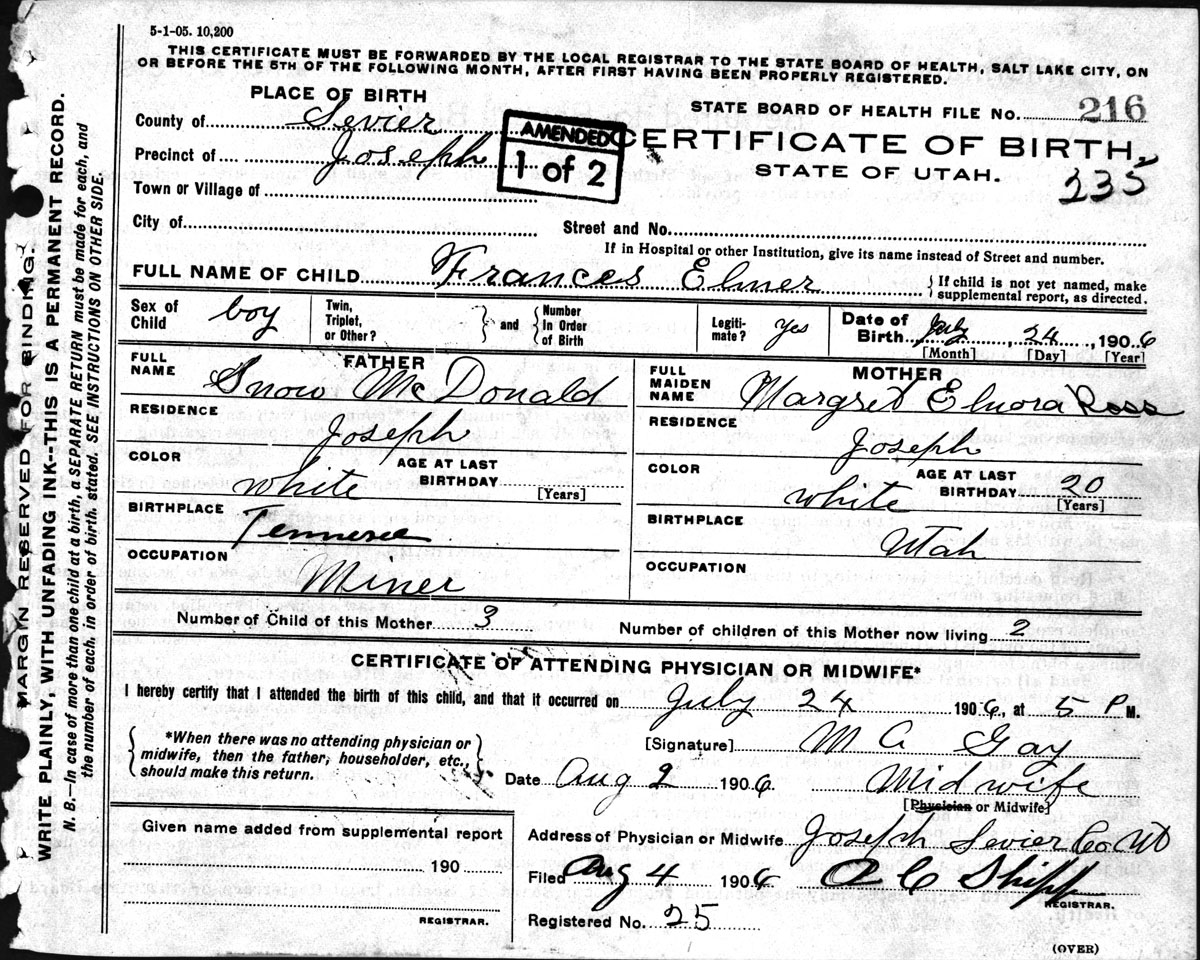 5-1-05. 10,200
THIS CERTIFICATE MUST BE FORWARDED BY THE LOCAL REGISTRAR TO THE STATE BOARD OF HEALTH, SALT LAKE CITY, ON
OR BEFORE THE 5TH OF THE FOLLOWING MONTH, AFTER FIRST HAVING BEEN PROPERLY REGISTERED.
MARGIN RESERVED FOR BINDING.
WRITE PLAINLY, WITH UNFADING INK--THIS IS A PERMANENT RECORD.
N. B.—In case of more than one child at a birth, a SEPARATE RETURN must be made for each, and
the number of each, in order of birth, stated. SEE INSTRUCTIONS ON OTHER SIDE.
PLACE OF BIRTH
STATE BOARD OF HEALTH FILE No. 216
County of Sevier
AMENDED
1 of 2
CERTIFICATE OF BIRTH,
Precinct of Joseph
STATE OF UTAH.
235
Town or Village of
City of
Street and No.
If in Hospital or other Institution, give its name instead of Street and number.
FULL NAME OF CHILD Frances Elmer
If child is not yet named, make
supplemental report, as directed.
Sex of Child boy
Twin, Triplet, or Other?
and
Number in Order of Birth
Legiti- mate? Yes
Date of Birth July 24, 1906
[Month] [Day] [Year]
FATHER
FULL NAME Snow McDonald
RESIDENCE Joseph
COLOR white
AGE AT LAST BIRTHDAY
[Years]
BIRTHPLACE Tennesee
OCCUPATION Miner
MOTHER
FULL MAIDEN NAME Margret Elnora Ross
RESIDENCE Joseph
COLOR white
AGE AT LAST BIRTHDAY 20
[Years]
BIRTHPLACE Utah
OCCUPATION
Number of Child of this Mother 3
Number of children of this Mother now living 2
CERTIFICATE OF ATTENDING PHYSICIAN OR MIDWIFE*
I hereby certify that I attended the birth of this child, and that it occurred on July 24 1906, at 5 P M.
*When there was no attending physician or
midwife, then the father, householder, etc.,
should make this return.
[Signature] M A Gay
Date Aug 2 1906. Midwife
[Physician or Midwife]
Given name added from supplemental report
190
REGISTRAR.
Address of Physician or Midwife Joseph Sevier Co Ut
Filed Aug 4 1906 A C Shipp
REGISTRAR.
Registered No. 25
(OVER)